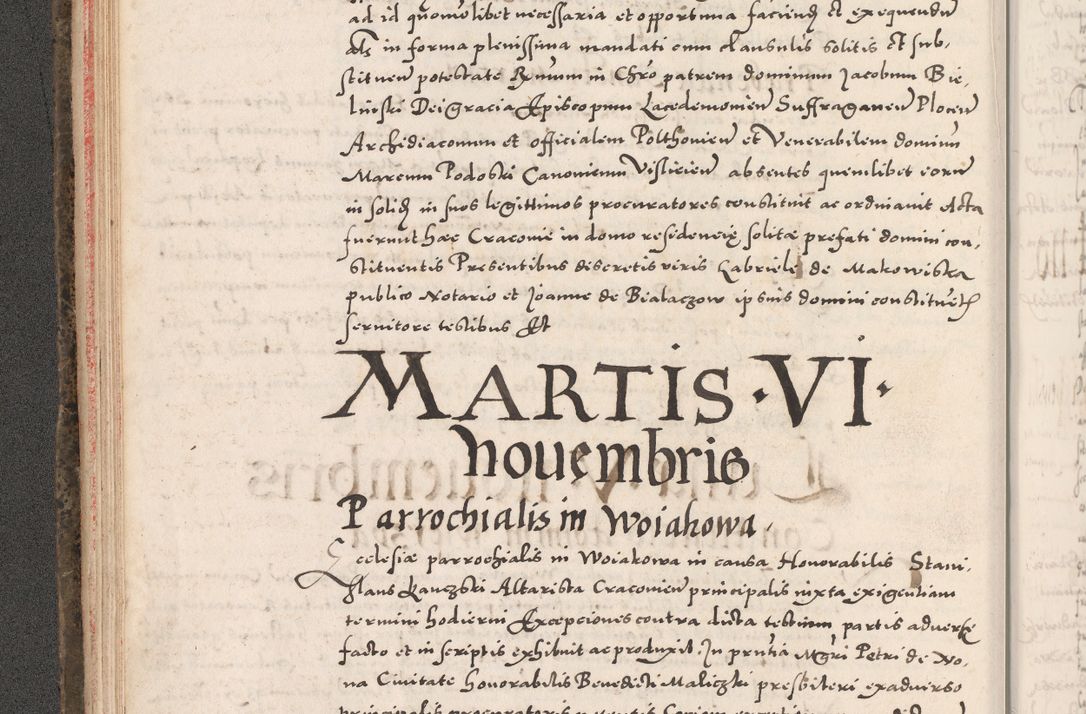 ad id quomolibet necessaria et opportuna faciend et exequendum
als in forma plenissima mandati cum clausulis solitis et sub-
stituend potestate Rndum in Chro patrem dominum Jacobum Bie-
linski Dei gracia Episcopum Lacedemonien Suffraganeu Plocen
Archidiaconum et officialem Polthovien et Venerabilem dominum
Marcum Podoski Canonicum Visliciens absentes quemlibet eorum
in solid in suos legittimos procuratores constituit ac ordinavit Acta
fuerunt haec Cracovie in domo residencie solitae prefati domini con-
stituentis Presentibus discretis viris Gabriele de Makowiska
publico Notario et Joanne de Bialaczow ipsius domini constituetis
servitore testibus Et
MARTIS · VI ·
Nouembris
Parrochialis in Woiakowa
Ecclesiae parrochialis in Woiakowa in causa Honorabilis Stani-
slaus Kanczski Altarista Cracovien principalis iuxta exigentiam
termini hodierni Excepciones contra dicta testium partis adverse
facto et in scriptis exhibuit ac produxit. In pntia Mgri Petri de No-
va Civitate honorabilis Benedicti Maliczki presbiteri ex adverso
principalis procuratoris